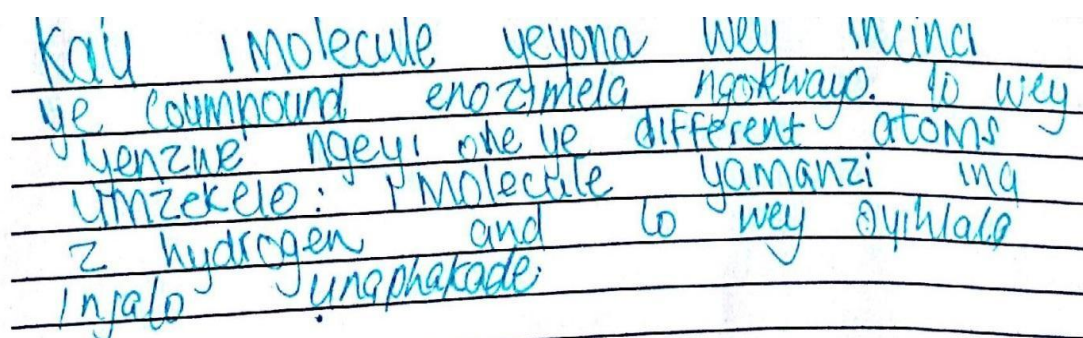 Kaú imolecule yeyona wey incinci
ye coumpound enozimela ngokwayo. lo wey
yenzwe ngeyi one ye different atoms
umzekelo: imolecule yamanzi ina
2 hydrogen and lo wey oyihlala
injalo unaphakade.